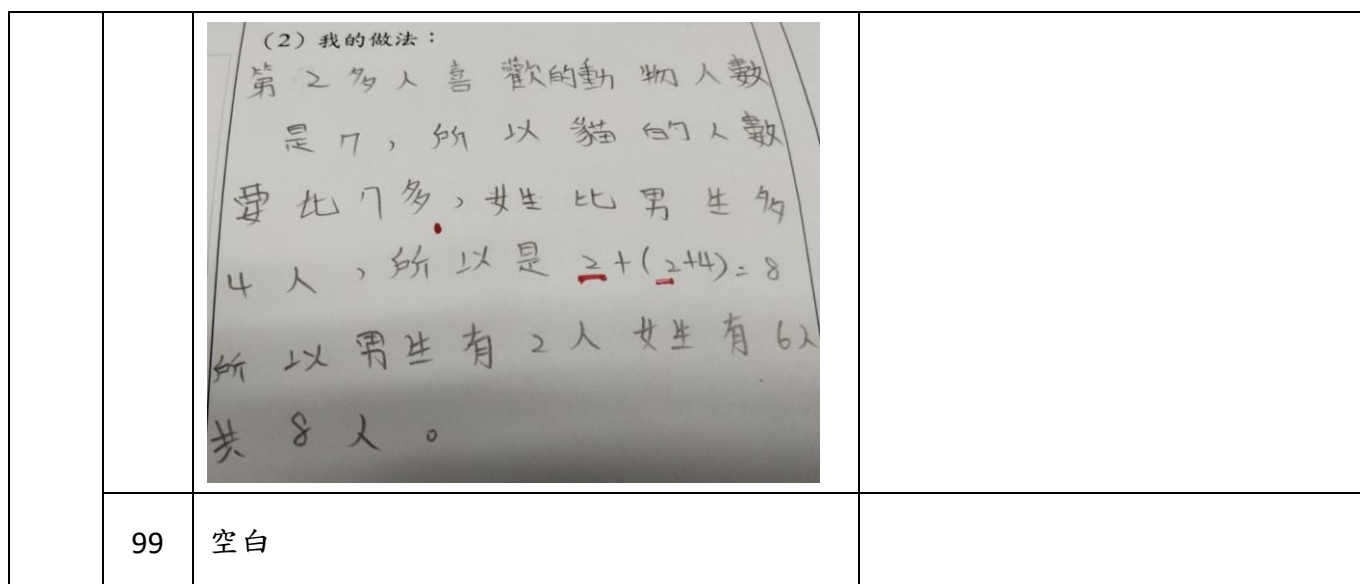 (2) 我的做法：
第 2 多人喜歡的動物人數
是 7，所以貓的人數
要比 7 多，女生比男生多
4 人，所以是 2+(2+4)=8
所以男生有 2 人女生有 6人
共 8 人。
99 空白